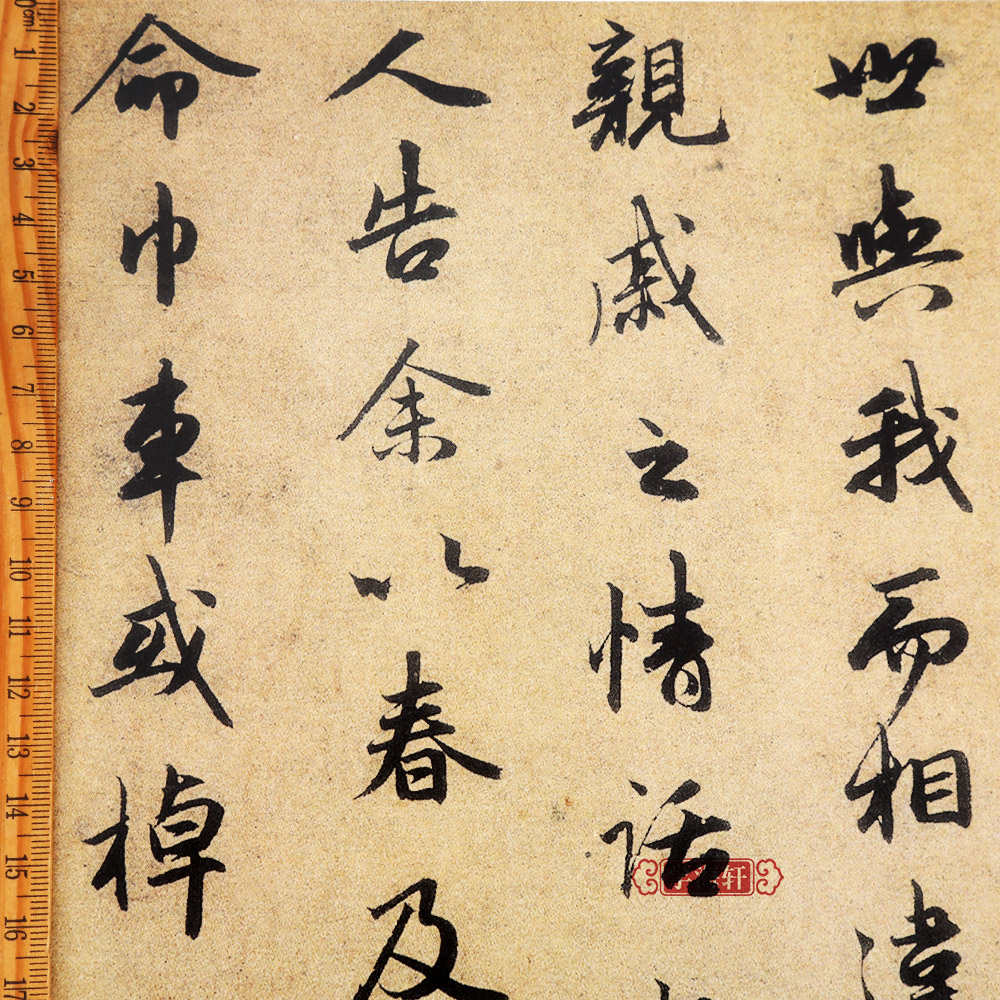 世與我而相違
親戚之情話
人告余以春及
命巾車或棹
0cm 1 2 3 4 5 6 7 8 9 10 11 12 13 14 15 16 17